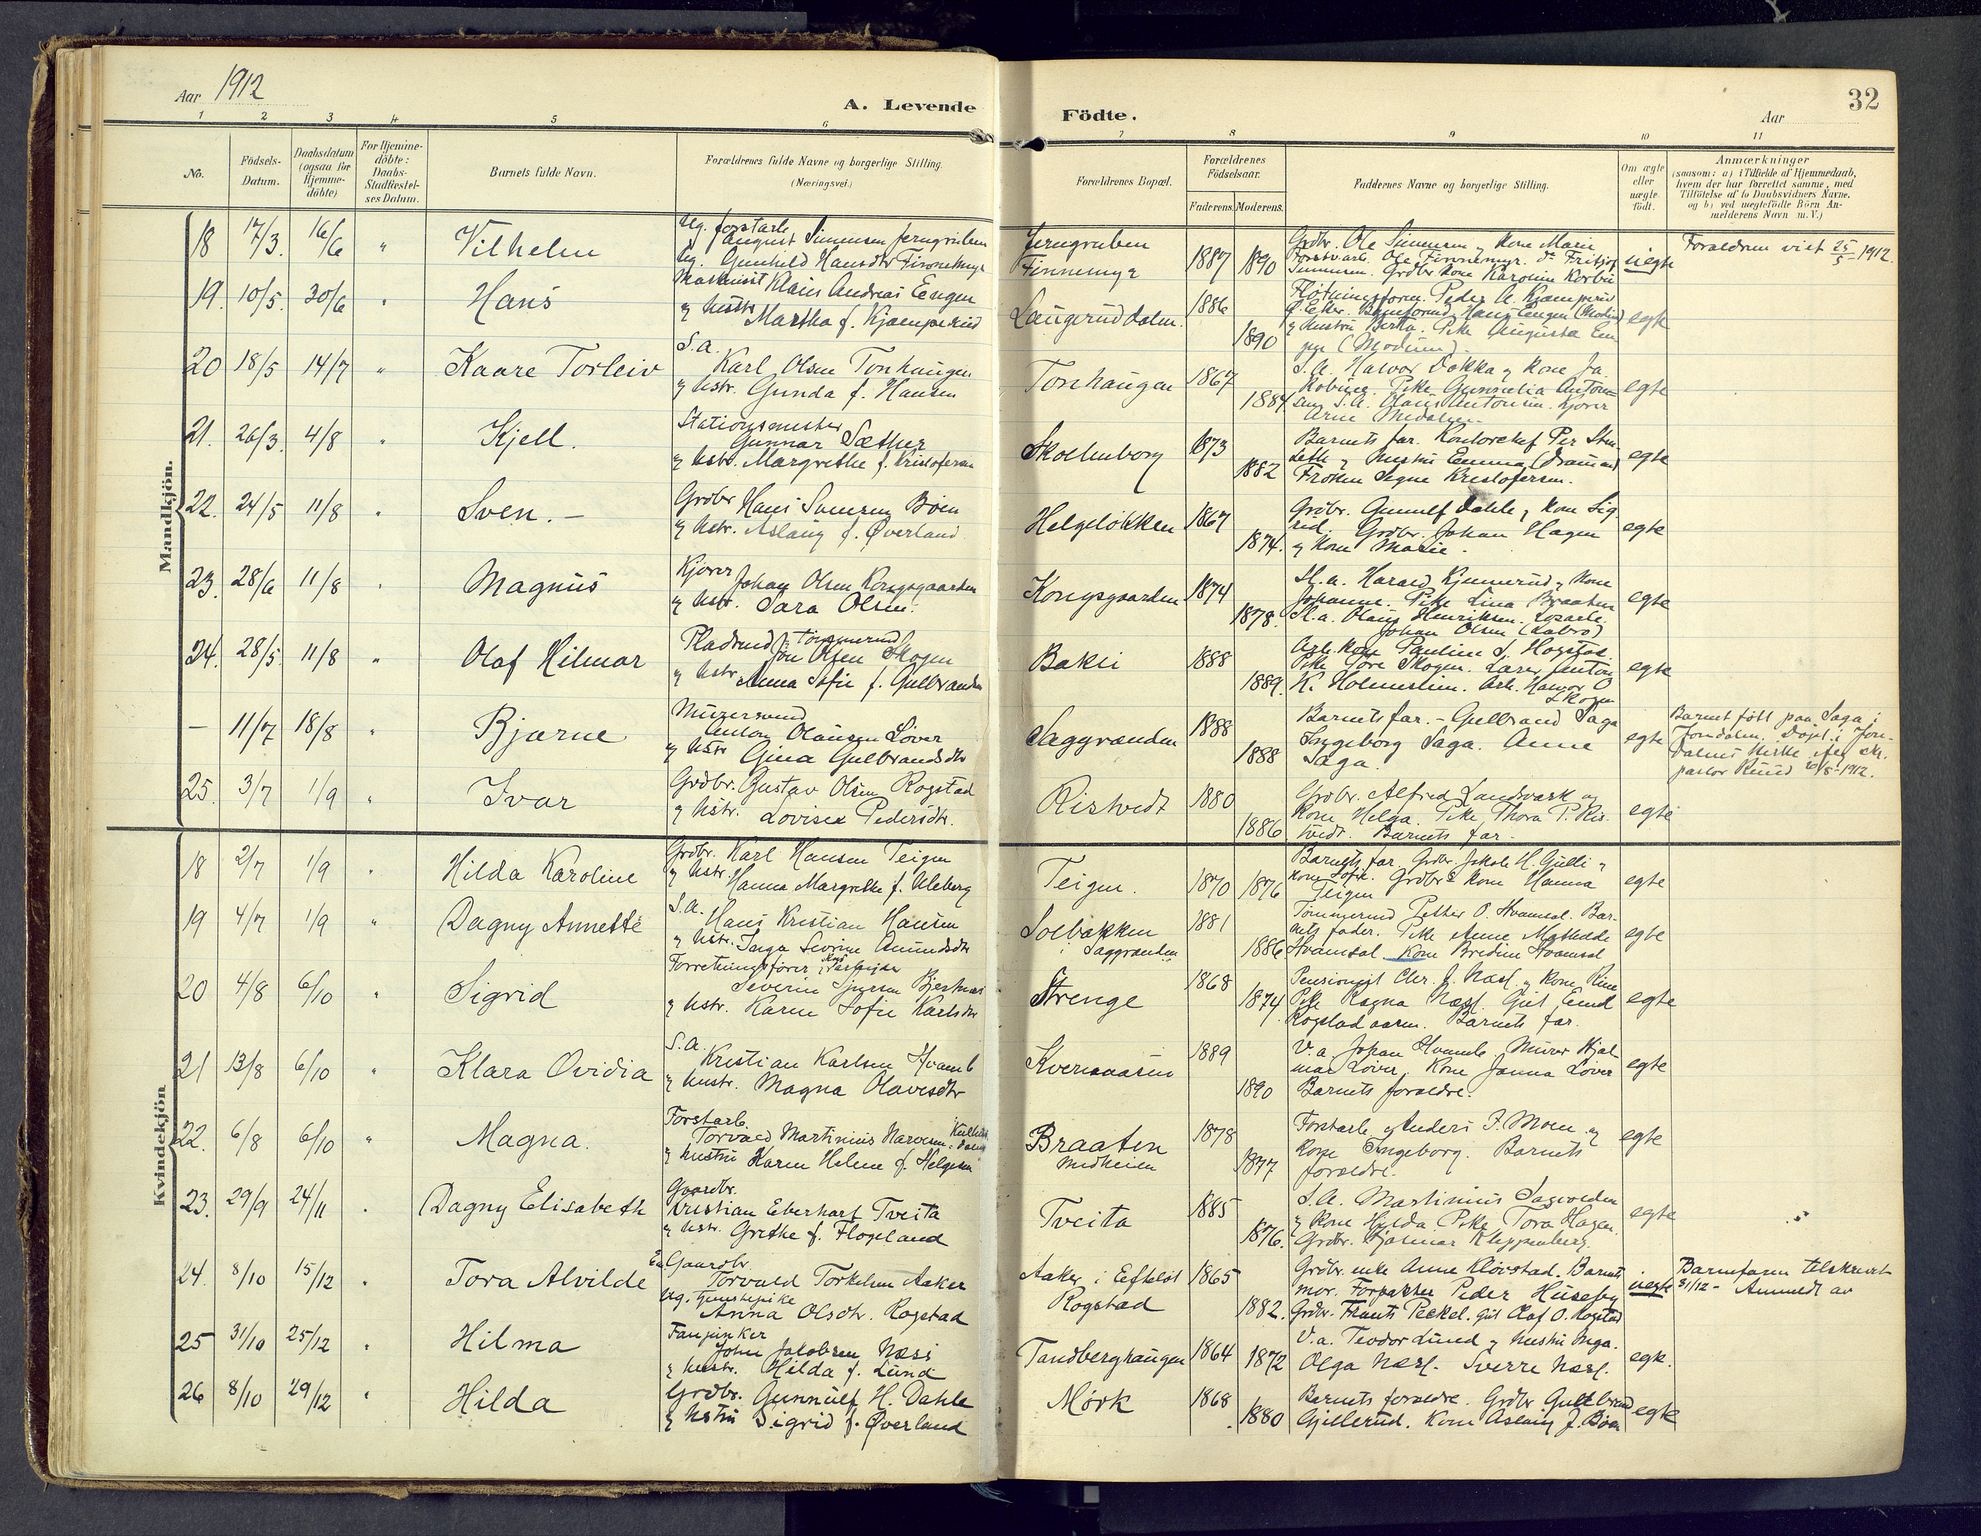 Aar 1912
A. Levende
Födte.
Aar
32
1 2 3 4 5 6 7 8 9 10 11
No.
Födsels-
Datum.
Daabsdatum
(ogsaa for
Hjemme-
döbte)
For Hjemme-
döbte:
Daabs-
Stadfæstel-
ses Datum.
Barnets fulde Navn.
Forældrenes fulde Navne og borgerlige Stilling.
(Næringsvei.)
Forældrenes Bopæl.
Forældrenes
Födselsaar.
Faderens. Moderens.
Faddernes Navne og borgerlige Stilling.
Om ægte
eller
uægte
födt.
Anmærkninger
(saasom: a) i Tilfælde af Hjemmedaab,
hvem der har forrettet samme, med
Tilföielse af to Daabsvidners Navne.
og b) ved uægtefödte Börn An-
melderens Navn m. V.)
Mandkjön.
18 17/3. 16/6 " Vilhelm
Ug. forstarb.
August Simensen Jerngruben
Ug. Gunhild Hansdtr Finnemyr
Jerngruben
Finnemyr
1887 1890
Grdbr. Ole Simensen og Kone Marie
Forstarb. Ole Finnemyr.
Simensen. Grdbr kone Karoline
uegte
Foreldrene viet 25/5 1912.
19. 10/5. 30/6 " Hans
Maskinist Klaus Andreas Eengen
og Hustr. Martha f. Kjæmperud
Laugeruddalen.
1886
1890
Fløtningsform. Peder A. Kjæmperud
og Hustru Berta. Pike Augusta Een-
gen (Modum).
egte
20 18/5 14/7 " Kaare Torleiv
S.a.
Karl Olsen Tonhaugen
og Hstr. Gunda f. Hansen
Tonhaugen
1867
1884
S.A. Halvor Dokka og Kone Ja-
kobine. Pike
sen S.A. Olaus Antonsen. Kjører
Arne
egte
21. 26/3. 4/8 " Kjell.
Stationsmester
Gunnar Sæther
og Hstr. Margrethe f. Kristofersen
Skollenborg
1873
1882
Barnets far. Kontorchef Per Sten-
seth og Hustru Emma (Drammen)
Frøken Signe Kristofersen.
egte
22. 24/5 11/8 " Sven. -
Grdbr Hans Svensen Bøen
og Hstr. Aslaug f. Øverland.
Helgeløkken
1867
1874.
Grdbr. Gunulf Dahle og Kone Sig-
rid. Grdbr. Johan Hagen
og Kone Marie.
egte
23. 28/6 11/8 " Magnus
Kjører
Johan Olsen Kongsgaarden
og Hstr. Sara Olsen.
Kongsgaarden
1874
1878.
S.a. Harald Kjennerud og Kone
Johanne. Pike Lina Braaten
S.a. Olaus Henriksen. Losarb.
Johan Olsen (Labro)
egte
24. 28/5. 11/8 " Olaf Hilmar
Pladsmd og tømmermd
Jon Olsen Skogen
og Hstr. Anna Sofie f. Gulbrandsen
Bakli
1888
1889.
Arb. kone Pauline S. Hogstad.
Pike Tore Skogen. Lærer Anton
K. Holmstien. Arb. Halvor O
Skogen
egte
- 11/7 18/8 " Bjarne
Murersvend
Anton Olausen Løver
og Hstr Gina Gulbrandsdtr
Saggrænden
1888
1888
Barnets far. - Gulbrand Saga
Ingeborg Saga. Anne
Saga.
egte
Barnet født paa Saga i
Jondalen. Døpt i Jon-
dalens Kirke
pastor Ruud 1912.
25. 3/7 1/9 " Ivar
Grdbr. Gustav Olsen Rogstad
og Hstr. Lovise Pedersdtr.
Ristvedt
1880
1886
Grdbr. Alfred Landsværk og
Kone Helga. Pike Thora P. Ris-
tvedt. Barnets far.
egte
Kvindekjön
18 2/7 1/9 " Hilda Karoline
Grdbr. Karl Hansen Teigen
og Hstr. Hanna Margrethe f. Aleberg
Teigen.
1870 1876
Barnets far. Grdbr. Jakob H. Gulli og
Kone Sofie. Grdbr & Kone Hanna
Teigen
egte
19 4/7 1/9 " Dagny Annette
S.a.
Hans Kristian Hansen
og Hstr. Inga Severine Amundsdtr
Solbakken
i Saggrenden
1881
1886
Tømmermd Petter O. Hvamsal. Bar-
nets fader. Pike Anne Mathilde
Hvamsal. Kone Bredine Hvamsal
egte
20 4/8 6/10 " Sigrid
Forretningsfører i
Severin
og Hstr. Karen Sofie Karlsdtr
Strenge
1868
1874.
Pensionist Chr. J. Næss. og Kone
Pike Ragna Næss. Gut Emil
Rogstadaasen. Barnets far.
egte
21 13/8 6/10 " Klara Ovidia
S.a.
Kristian Karlsen Hvamb
og Hustr. Magna Olavesdtr
Kvernaasen
1889
1890
V.a. Johan Hvamb. Murer Hjal-
mar Løver. Kone Janna Løver
Barnets foreldre.
egte
22. 6/8 6/10 " Magna.
Forstarb.
Torvald Martinius Narvesen
og Hustru Karen Helene f. Helgesen
Braaten
Midheien
1878
1877
Forstarb. Anders P. Moen og
Kone Ingeborg. Barnets
foreldre.
egte
23. 29/9 24/11 " Dagny Elisabeth
Gaardbr.
Kristian Eberhart Tveita
og Hstr. Grethe f. Flogeland
Tveita
1885
1876.
S.A. Martinius Sagvolden
og Kone Hulda. Pike Tora Hagen.
Grdbr. Hjalmar Kleppenberg.
egte
24. 8/10 15/12 " Tora Alvilde
Em. Gaardbr.
Torvald Torkelsen Aaker
Ug. tjenestepike
Anna Olsdtr. Rogstad
Aaker i Efteløt
Rogstad
1865
1882.
Grdbr. enke Anne Klovstad. Barnets
mor. Forpakter Peder Huseby.
Grdbr. Frants Peckel. gut Olaf O. Rogstad
uegte
Barnefaren tilskrevet
31/12 - Anmeldt av
25 31/10 25/12 " Hilma
Fanjunker
John Jakobsen Næss
og Hustr. Hilda f. Lund
Tandberghaugen
1864 1872
V.a. Teodor Lund og Hustru Inga.
Olga Næss. Sverre Næss.
egte.
26 8/10 29/12 " Hilda
Grdbr. Gunnulf H. Dahle
og Hstru Sigrid f. Øverland
Mørk
1868
1880
Barnets foreldre. Grdbr Gulbrand
Gjellerud. Kone Aslaug J. Bøen
egte